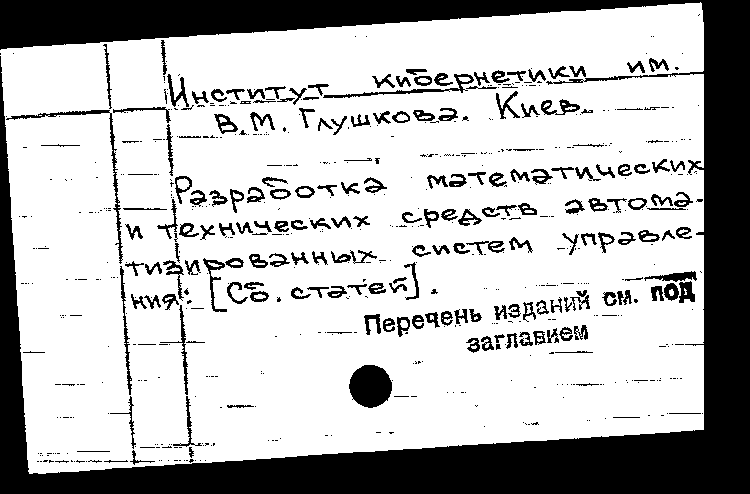 Институт кибернетики им.
В.М. Глушкова. Киев.
Разработка математических
и технических средств автома-
тизированных систем управле-
ния: [Сб. статей].
Перечень изданий см. под
заглавием